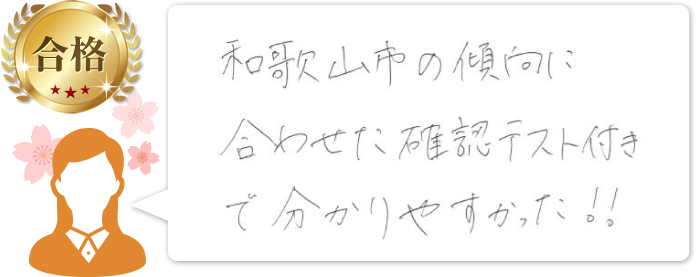 合格
和歌山市の傾向に
合わせた確認テスト付き
で分かりやすかった!!